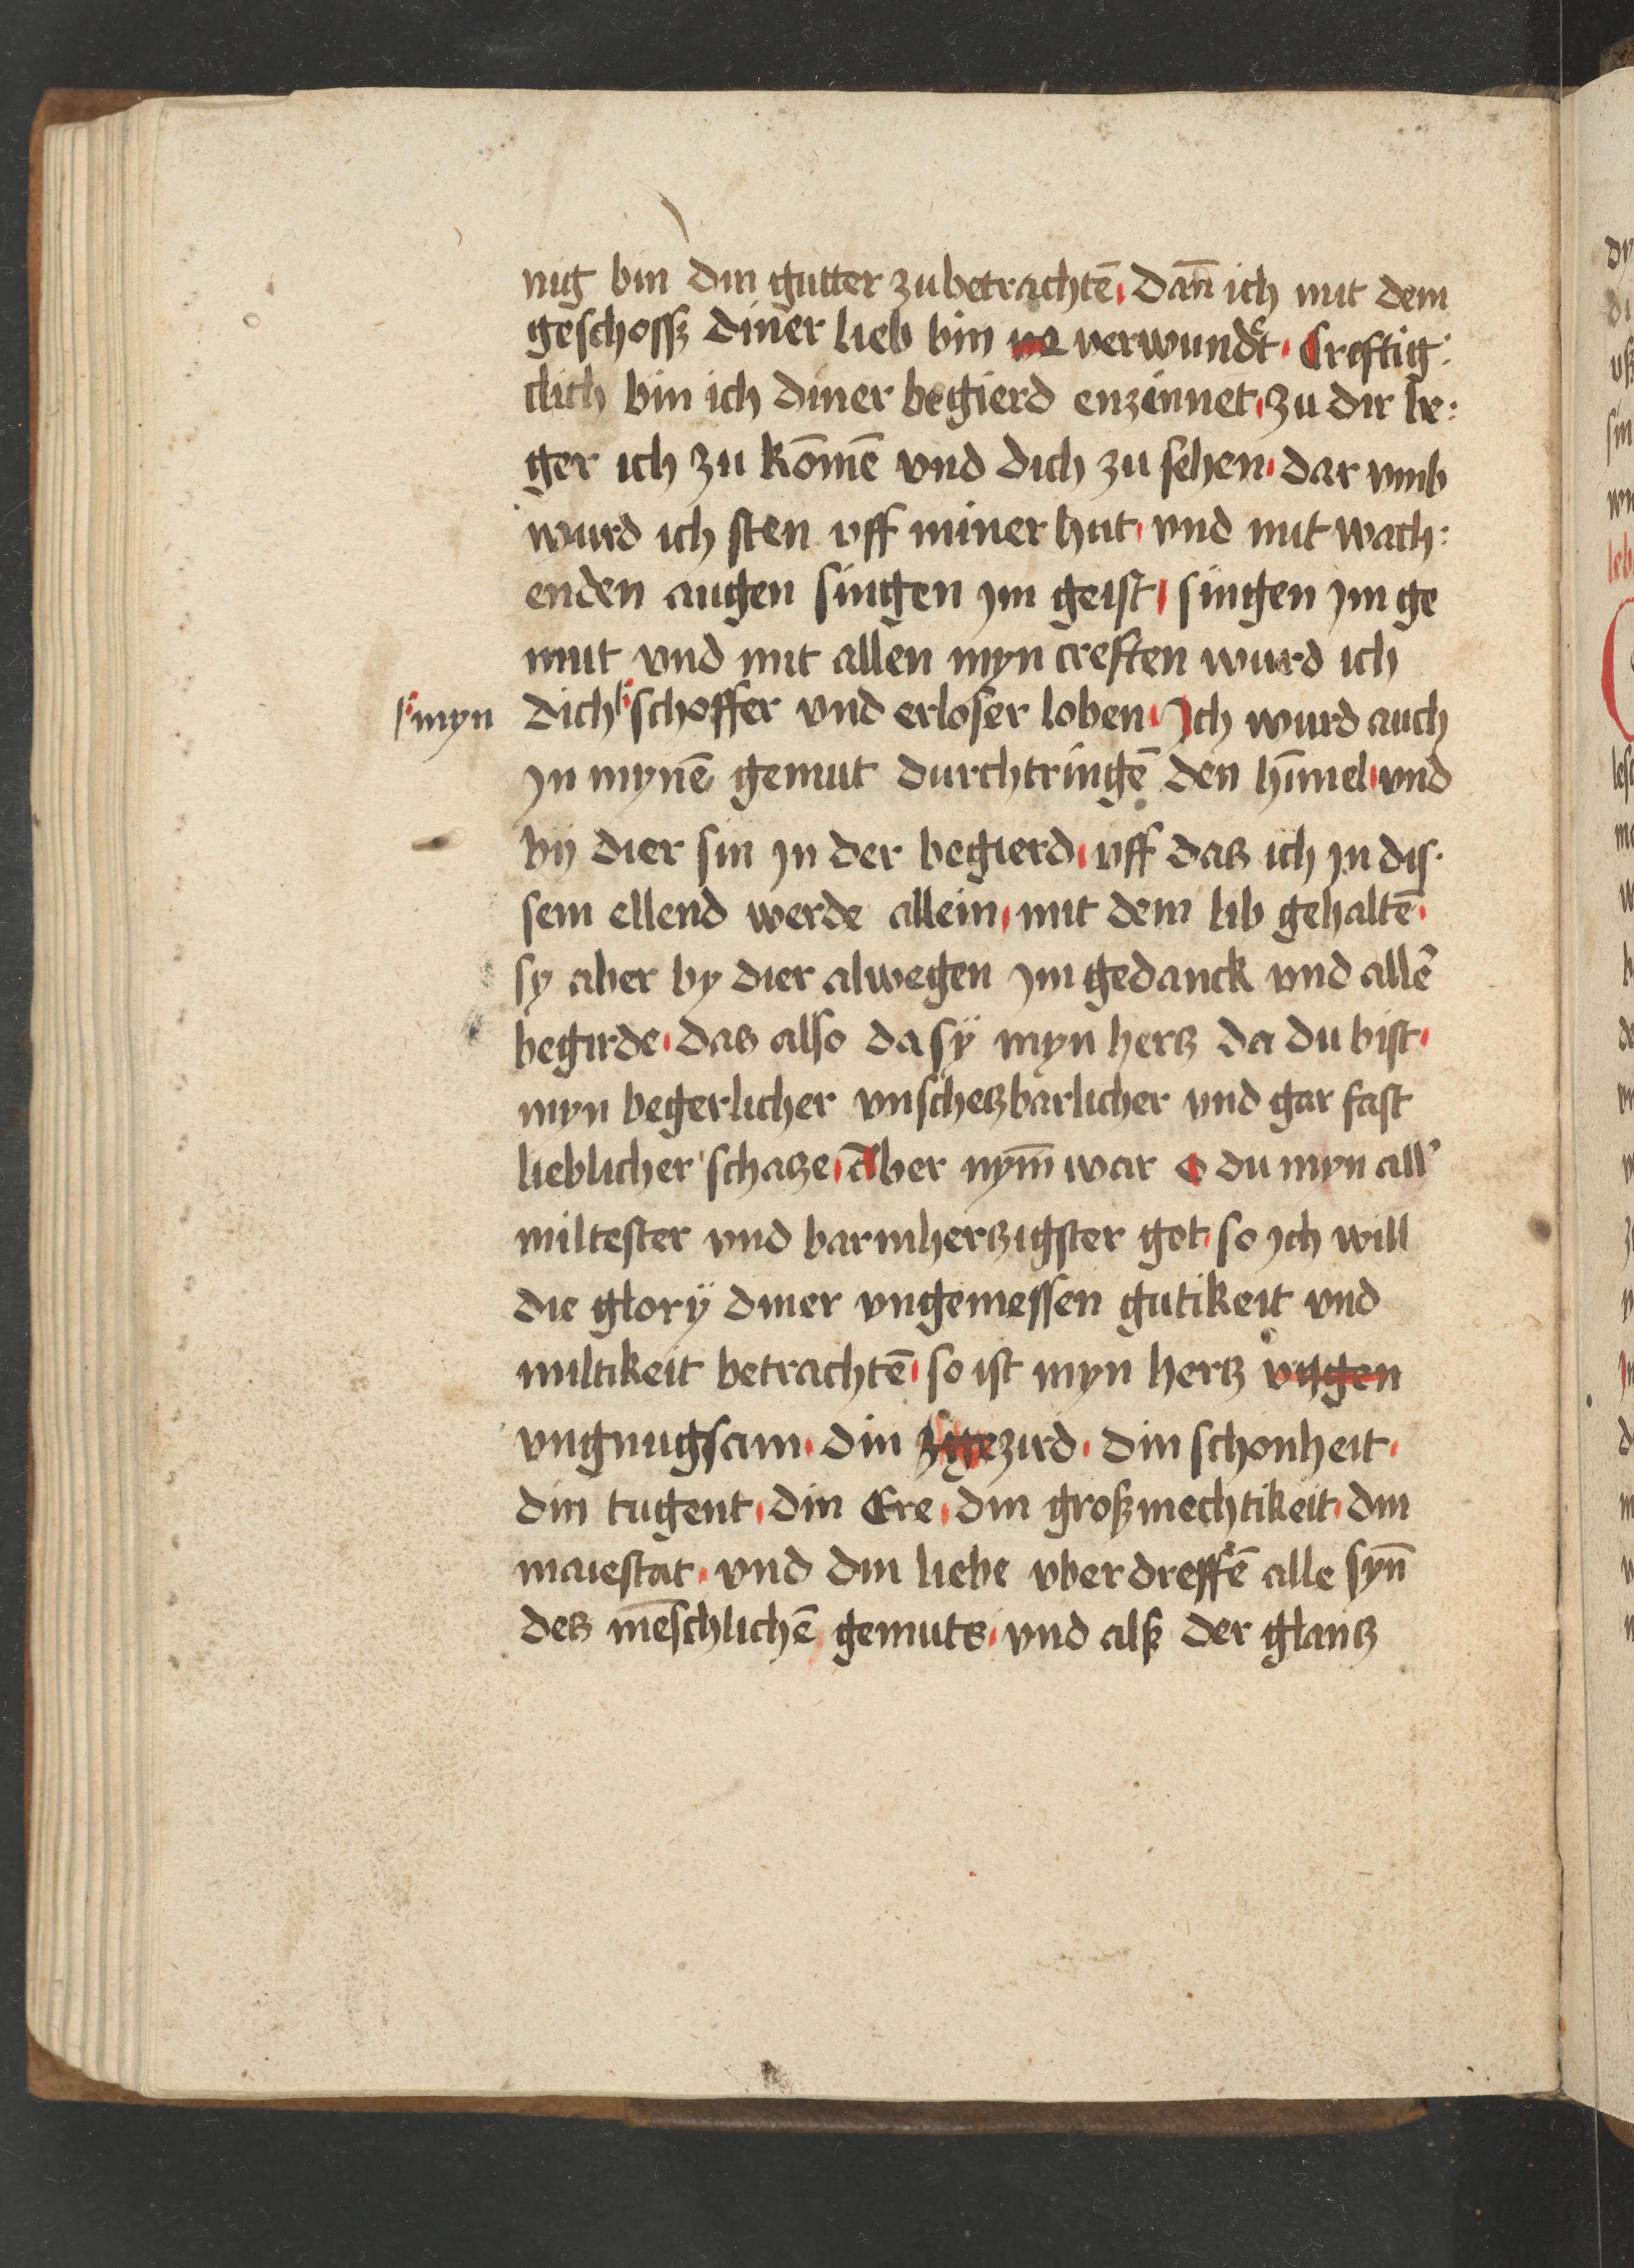 nig bin din gutter zu betrachtē. Dañ ich mit dem
geschossz diner lieb bin ve verwundet. Creftig:
clich bin ich diner begierd enzinnet. zu dir be:
ger ich zu kōmē vnd dich zu sehen. dar vmb
wurd ich sten vff miner hut. vnd mit wach:
enden augen singen jm geist. singen jm ge
mut vnd mit allen myn creften wurd ich
myn
dich schoffer vnd erloser loben. Jch wurd auch
jn mynē gemut durchtringē den hīmel. vnd
bij dier sin jn der begierd. vff das ich jn dis.
sem ellend werde allein. mit dem lib gehaltē.
sy aber by dier alwegen jm gedanck vnd allē
begirde. das also da sÿ myn hertz da du bist.
myn begerlicher vnschetzbarlicher vnd gar fast
lieblicher schatze. Aber nym̄ war O du myn all'
miltester vnd barmhertzigster got. so jch will
die glorÿ diner vngemessen gutikeit vnd
miltikeit betrachtē. so ist myn hertz vngen
vngnugsam. din zige zird. din schonheit.
din tugent. din Ere. din groszmechtikeit. din
maiestat. vnd din liebe vberdreffē alle syn̄
des mēschlichē gemuts. vnd alsz der glantz